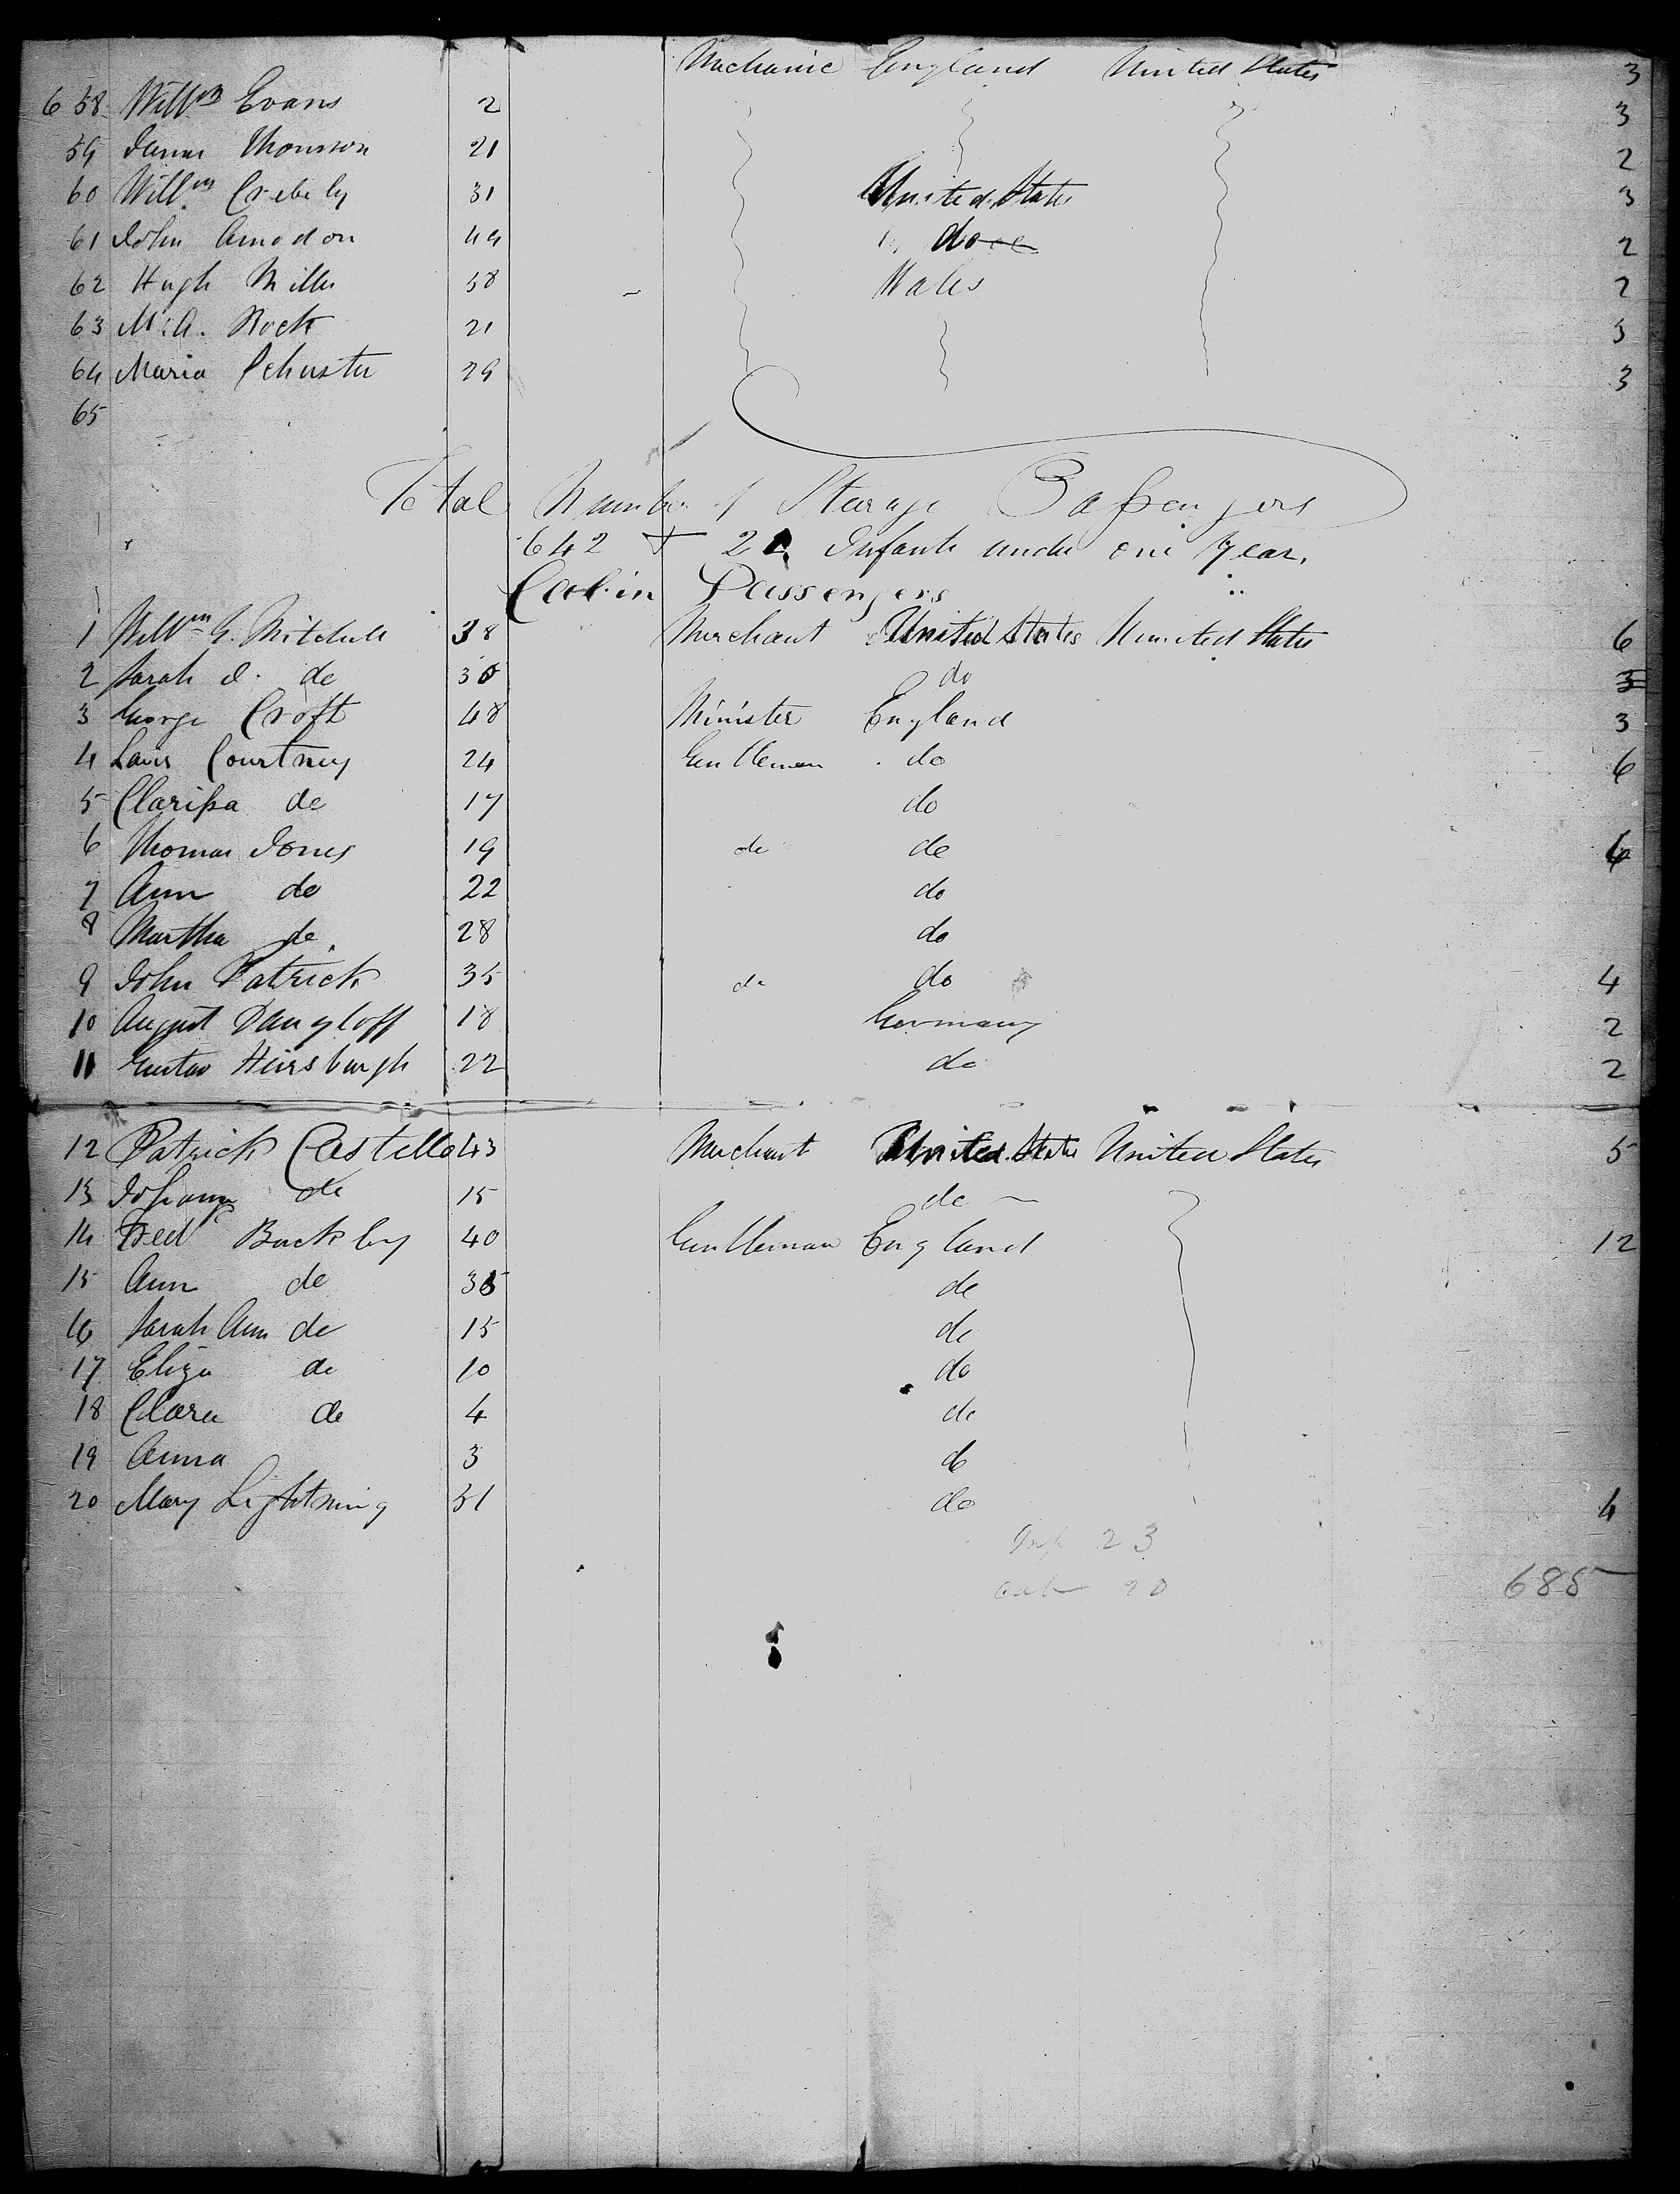 Mechanic England United States 3
6 58 Willm Evans 2 3
59 James Thomson 21 2
60 Willm 31 United States 3
61 John Amodon 44 do 2
62 Hugh Miller 58 Wales 2
63 M. A. Rock 21 3
64 Maria Schuster 29 3
65
Total Number of Steerage Passengers
642 + 22 Infants under one Year.
Cabin Passengers
1 Willm G. Mitchell 38 Merchant United States United States 6
2 Sarah d. do 30 do 3
3 George Croft 48 Minister England 3
4 Courtney 24 Gentleman do 6
5 Clarissa do 17 do
6 Thomas Jones 19 do do 6
7 Ann do 22 do
8 Martha do 28 do
9 John Patrick 35 do do 4
10 August Dangloff 18 Germany 2
11 Gustav Heirsburgh 22 do 2
12 Patrick Castello 43 Merchant United States United States 5
13 do 15 do
14 Fredk Buckley 40 Gentleman England 12
15 Ann do 35 do
16 Sarah Ann do 15 do
17 Eliza do 10 do
18 Clara do 4 do
19 Anna 3 do
20 Mary Lightning 51 do 4
Inf 23
Cab 20 685